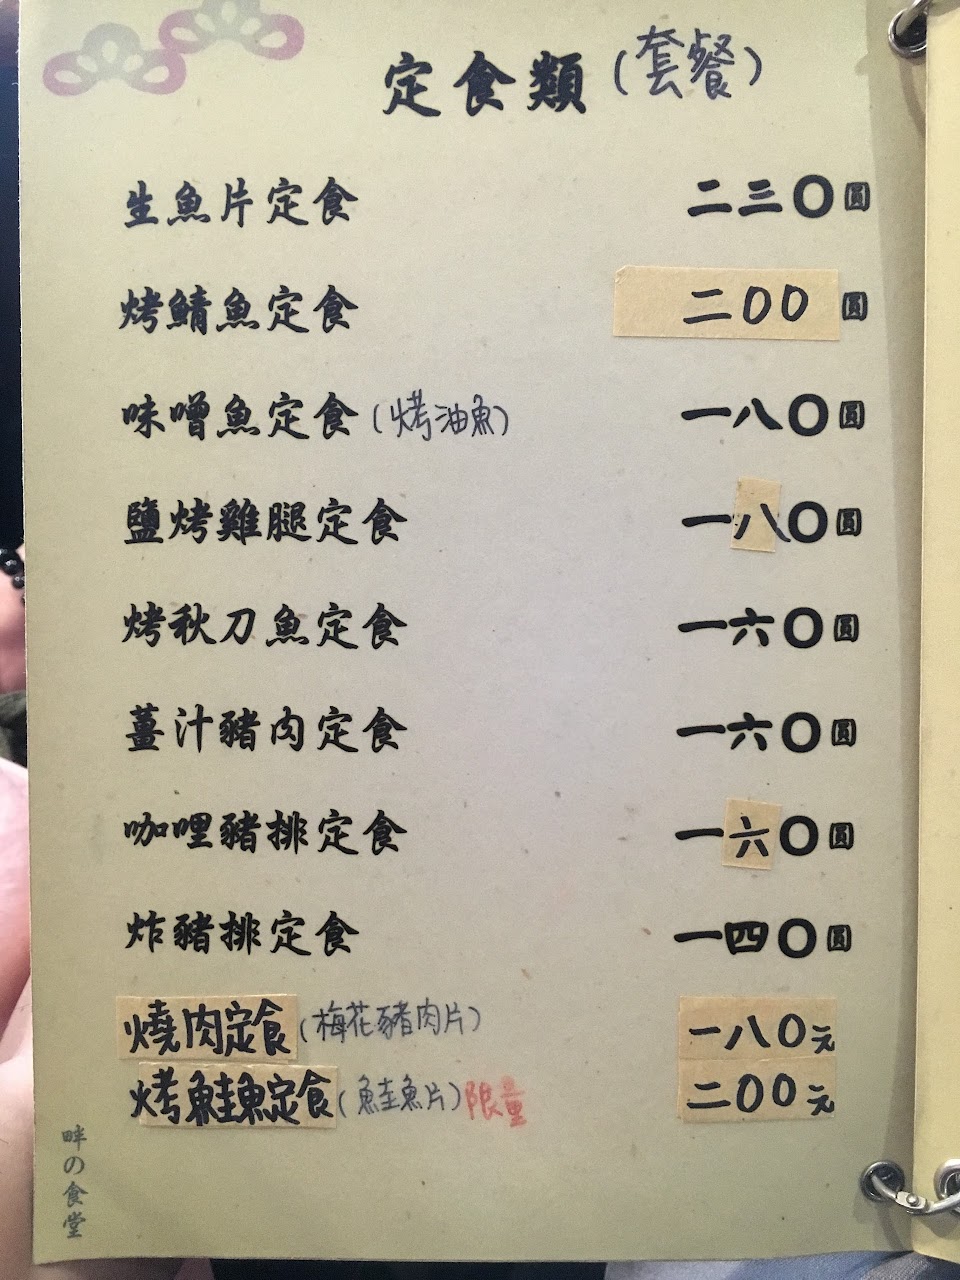 定食類(套餐)
生魚片定食 二三〇圓
烤鯖魚定食 二〇〇圓
味噌魚定食(烤油魚) 一八〇圓
鹽烤雞腿定食 一八〇圓
烤秋刀魚定食 一六〇圓
薑汁豬肉定食 一六〇圓
咖哩豬排定食 一六〇圓
炸豬排定食 一四〇圓
燒肉定食(梅花豬肉片) 一八〇元
烤鮭魚定食(鮭魚片)限量 二〇〇元
畔の食堂